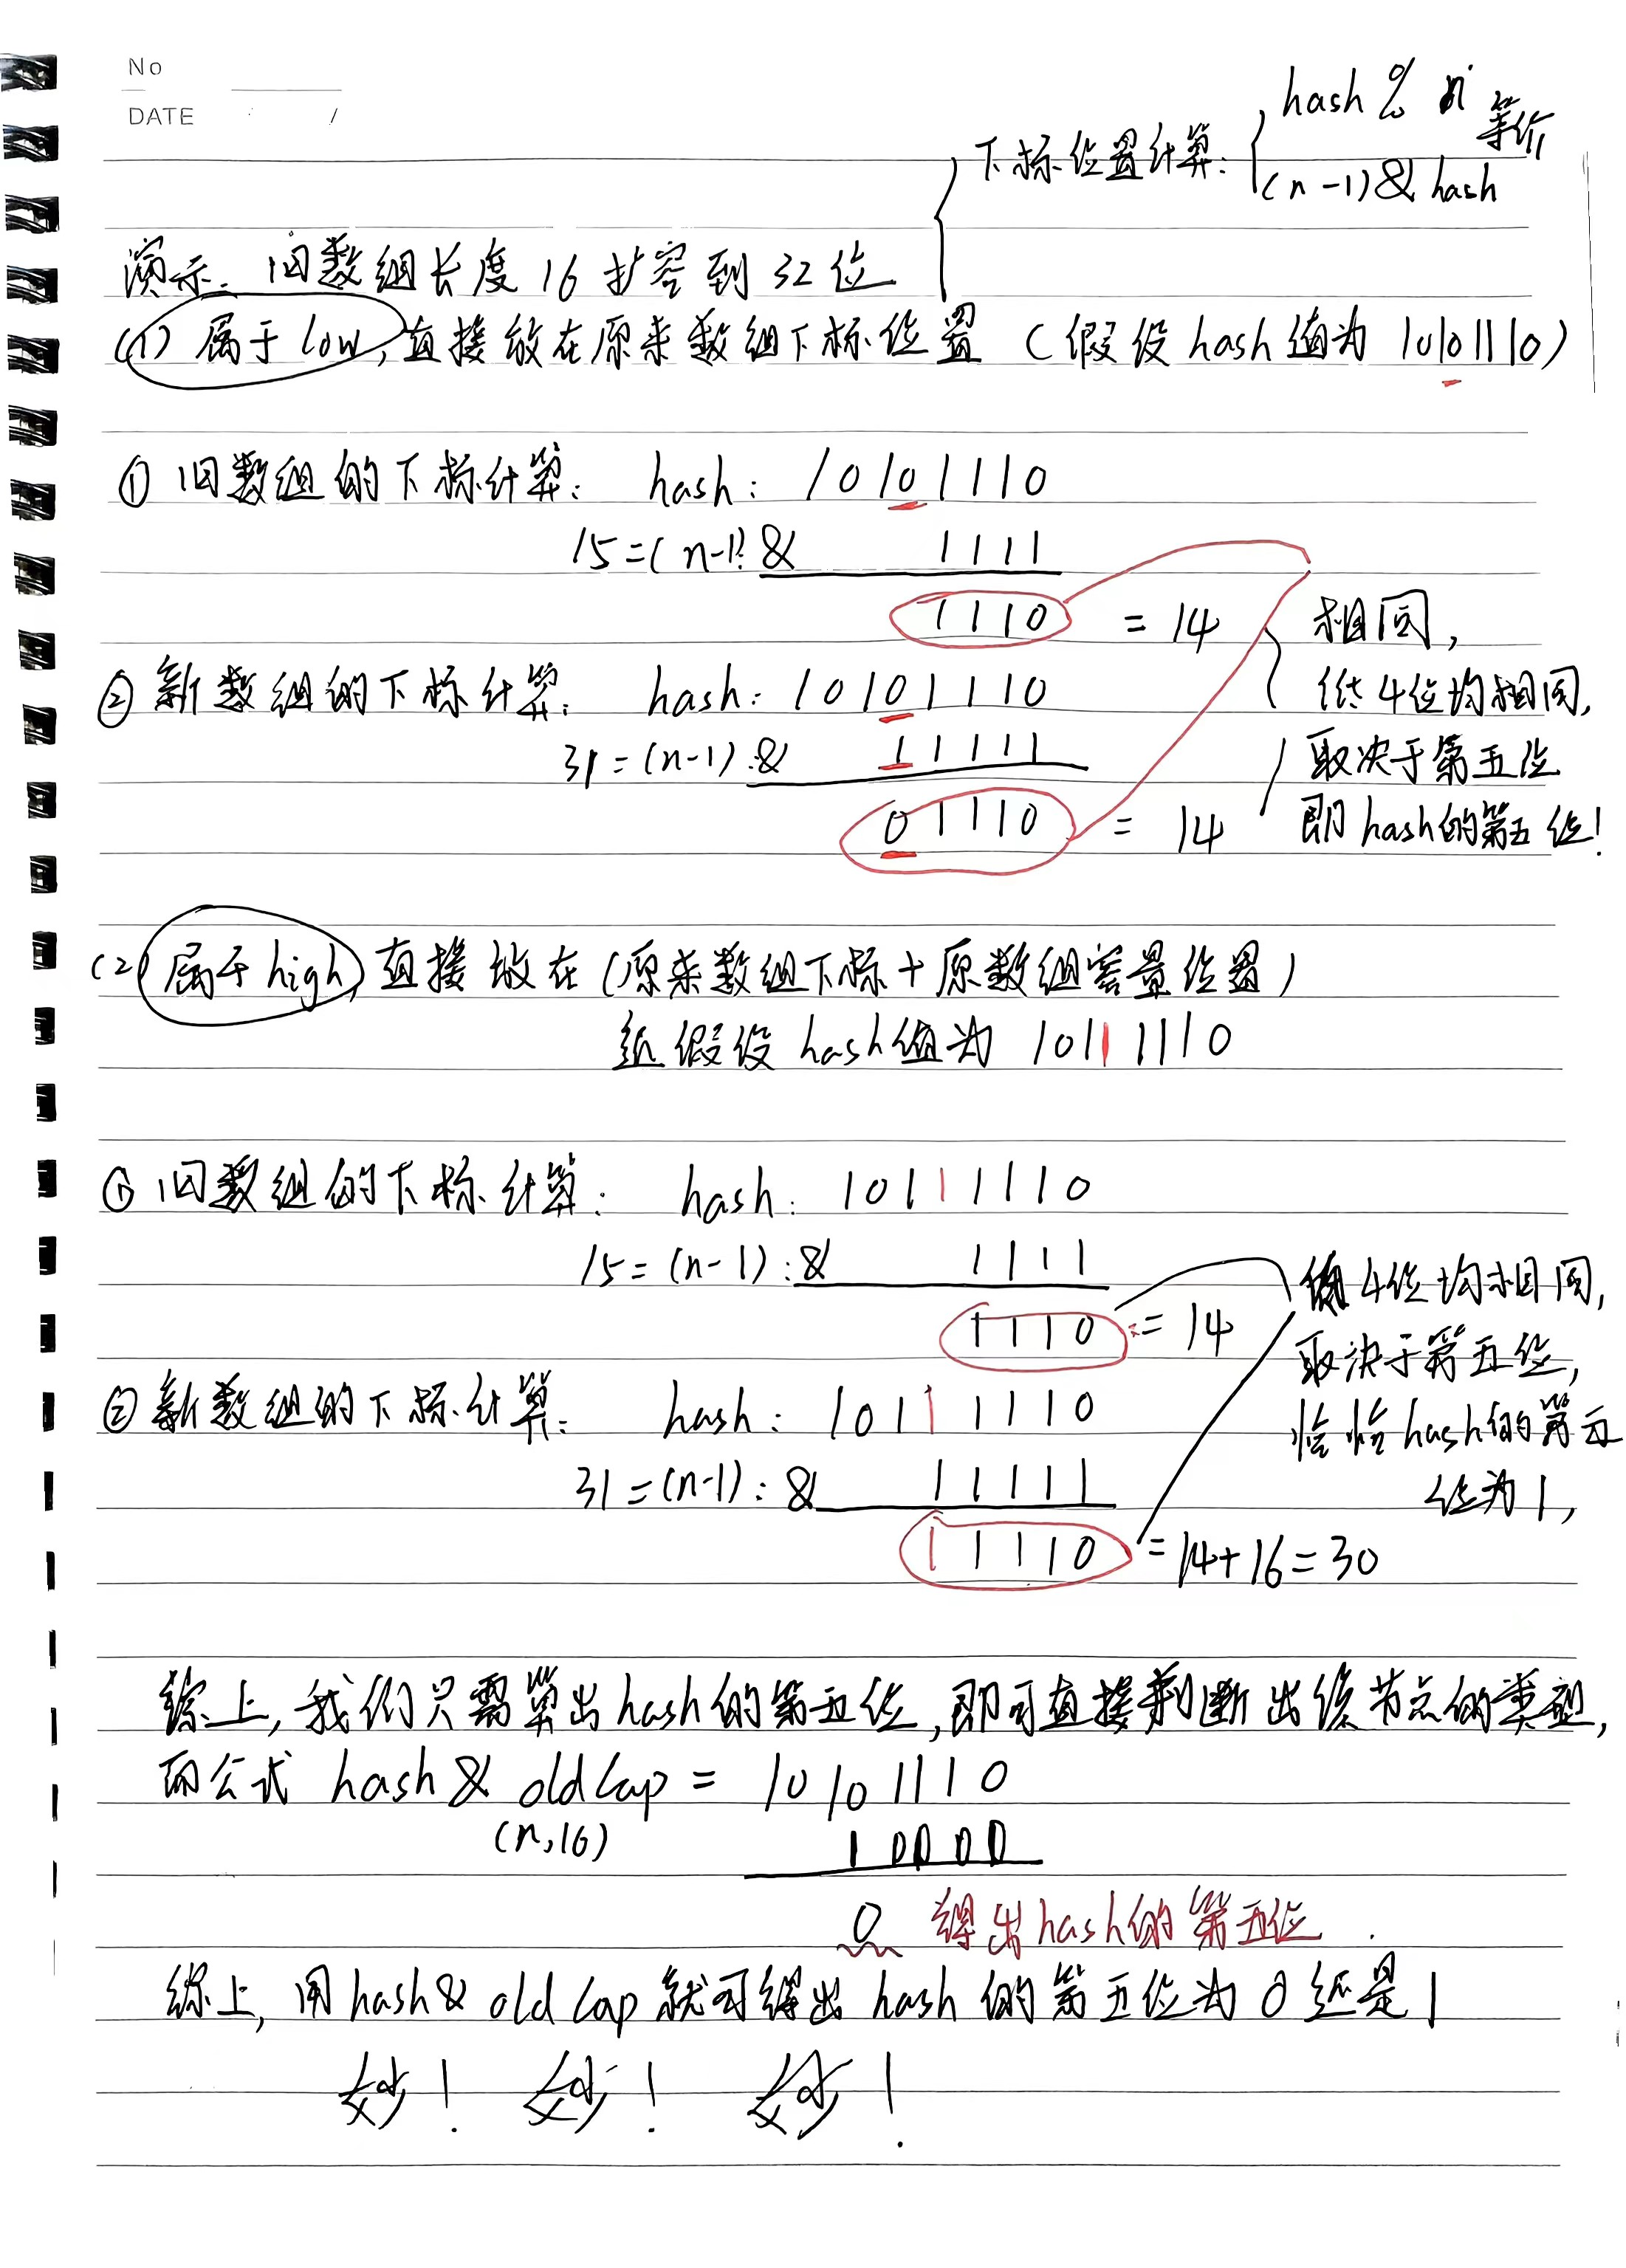 No
DATE /
下标位置计算: hash % n 等价
(n-1)& hash
演示: 旧数组长度 16 扩容到 32 位
(1) 属于 low, 直接放在原来数组下标位置 (假设 hash 值为 10101110)
① 旧数组的下标计算: hash: 10101110
15=(n-1): & 1111
1110 = 14
相同,
② 新数组的下标计算: hash: 10101110
低4位均相同,
31=(n-1): & 11111
取决于第五位
01110 = 14
即 hash的第五位!
(2) 属于 high, 直接放在 (原来数组下标+原数组容量位置)
假设 hash值为 10111110
① 旧数组的下标计算: hash: 10111110
15=(n-1): & 1111
4位均相同,
1110 = 14
取决于第五位,
② 新数组的下标计算: hash: 10111110
恰恰 hash的第五
31=(n-1): & 11111
位为1,
11110 =14+16=30
综上, 我们只需算出 hash的第五位, 即可直接判断出该节点的类型,
而公式 hash & oldCap = 10101110
(n,16) 10000
0 得出hash的第五位.
综上, 用 hash & oldCap 就可得出 hash 的第五位为 0 还是 1
妙! 妙! 妙!